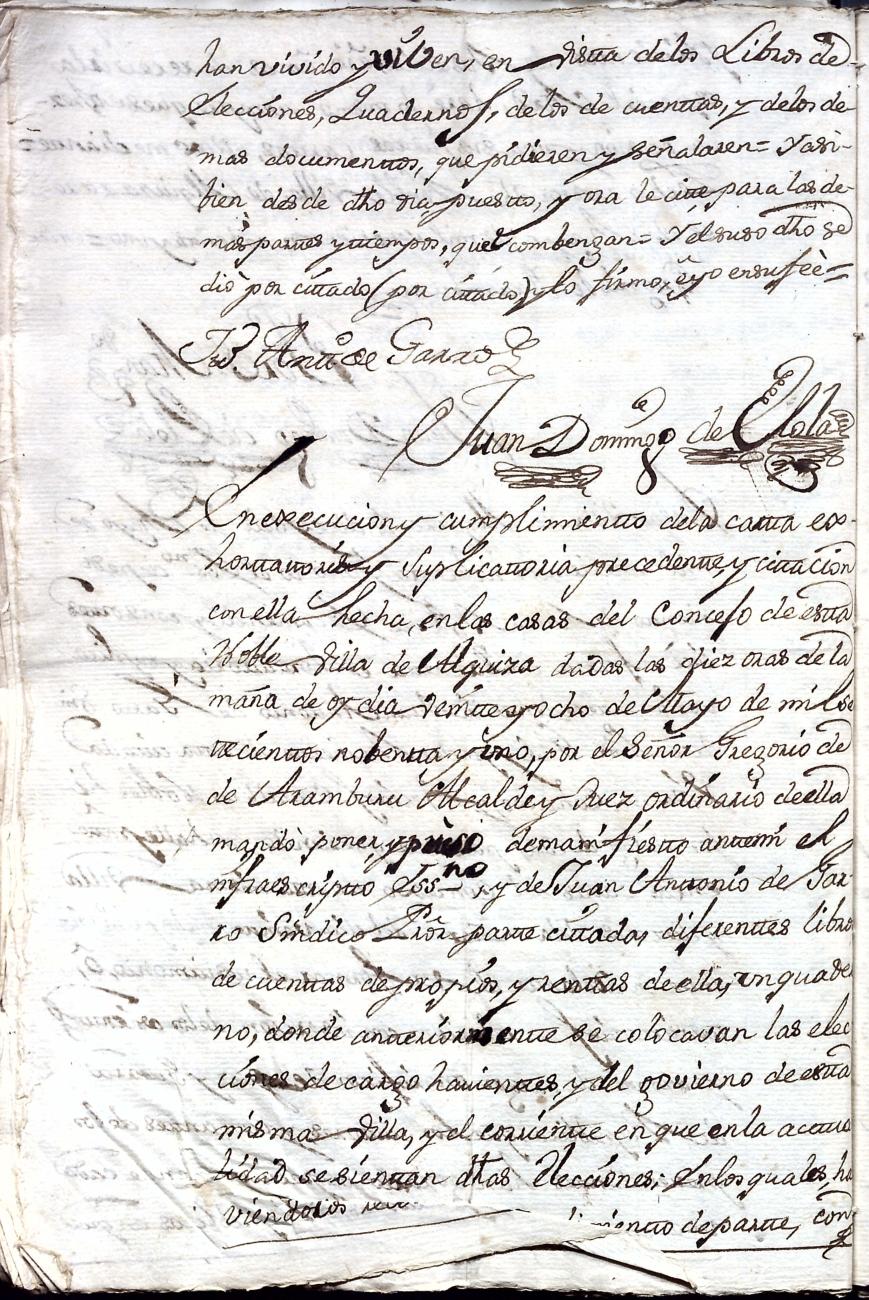 han vivido y viben, en vistta delos Libros de
Elecciones, Quadernos, delos de cuenttas, y delos de
mas documenttos, que pidieren y señalaren= Y asi-
bien desde dho dia puestto, y ora le citte para las de-
mas parttes y ttiempos, que combengan= Y el suso dho se
diò por cittado (por cittado) y lo firmo, è yo en su feè=
Antt.º de Garro
Juan Doming.º de Elola
En execucion y cumplimientto dela cartta ex-
horttattoria y Suplicattoria precedentte, y cittacion
con ella hecha, en las casas del Concejo de estta
Noble Villa de Alquiza dadas las diez oras de la
mañana de oy dia veintte y ocho de Mayo de mil se
ttecienttos nobentta y uno, por el Señor Gregorio de
de Aramburu Alcalde y Juez ordinario de ella
mandò poner, y puso de manifiestto antte mi el
infraescriptto Ess.no, y de Juan Anttonio de Gar-
ro Sindico Pror. partte cittada, diferenttes libro
de cuenttas de propios, y renttas de ella, un quade
no, donde antteriormentte se colocavan las elec
ciones de cargo havienttes, y del govierno de estta
misma Villa, y el corrientte en que en la acttua
lidad se sienttan dhas Elecciones; En los quales, ha
viendolos
de partte, con